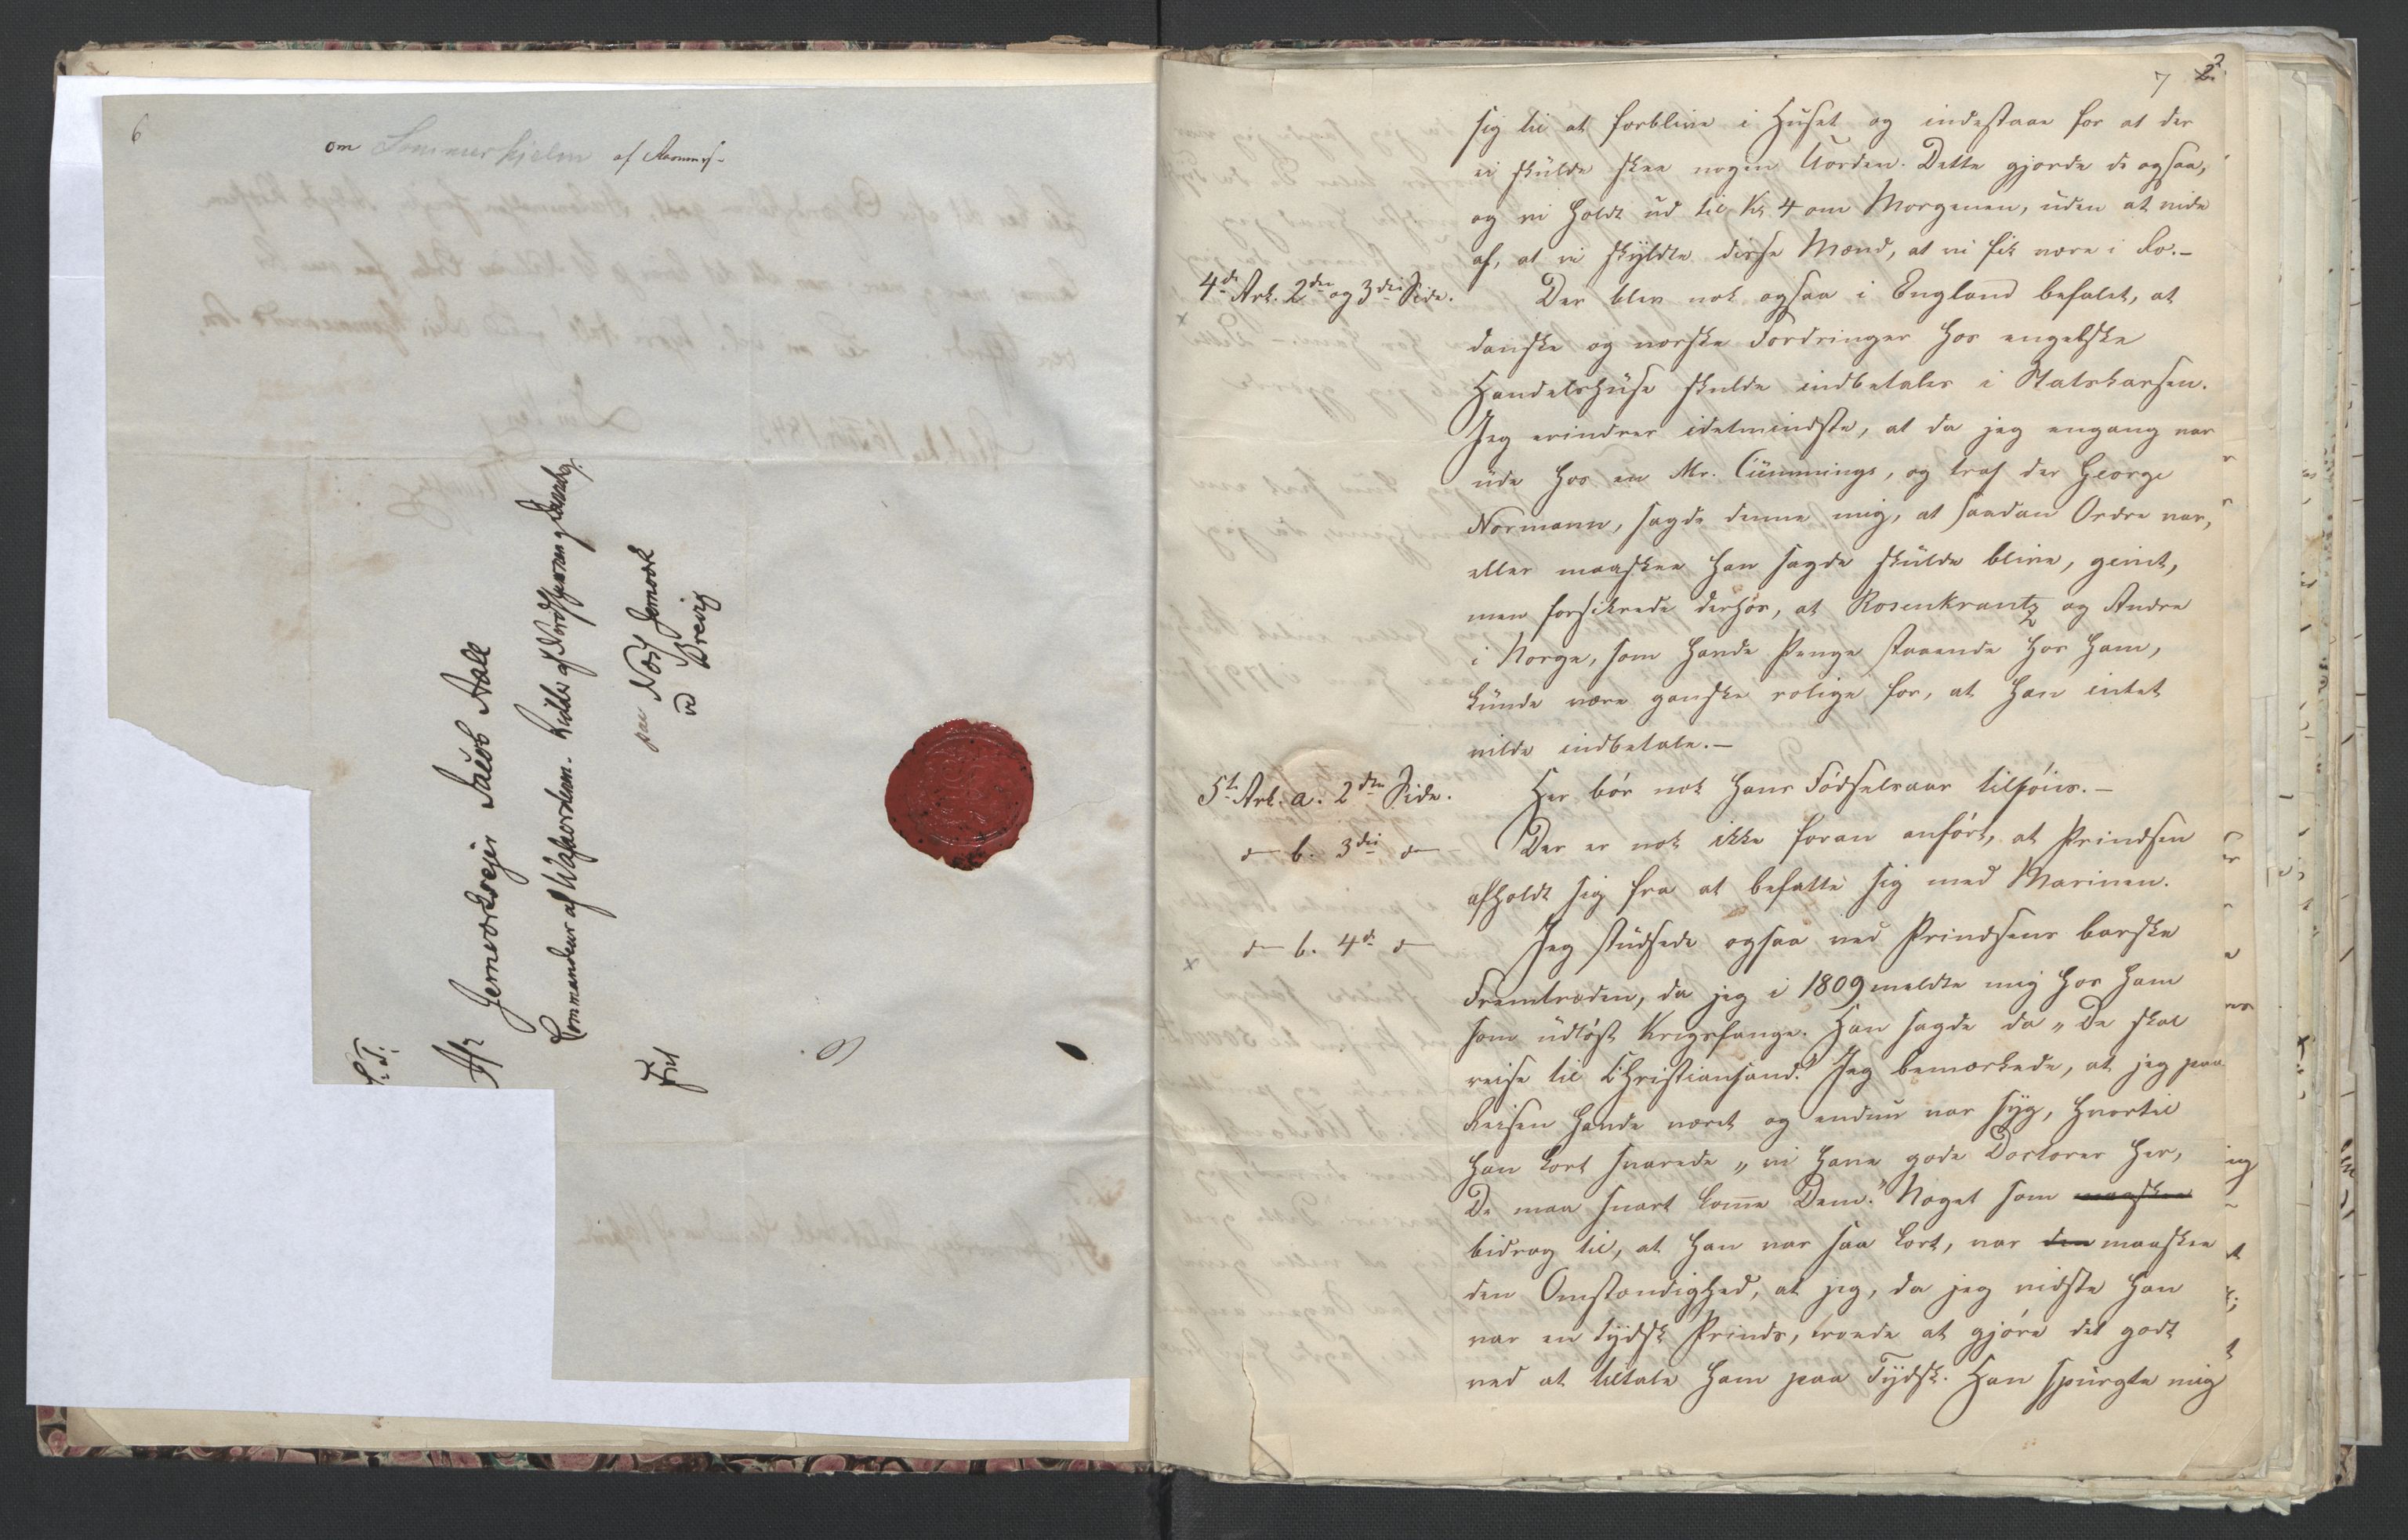 6
om Sommerhjelm af
S. T.
Hr Jernværkseier Jacob Aall
Commandeur af Wasaordenen. Ridder af Nordstjernen og Dannebrog.
paa Næs Jernværk
ved Brevig
Frit
7 2
sig til at forblive i Huset og indestaae for at der
ei skulde skee nogen Uorden. Dette gjorde de ogsaa,
og vi holdt ud til Kl. 4 om Morgenen, uden at vide
af, at vi skyldte disse Mænd, at vi fik være i Ro.-
4de Ark. 2den og 3die Side. Der blev nok ogsaa i England befalet, at
danske og norske Fordringer hos engelske
Handelshuse skulde indbetales i Statskassen.
Jeg erindrer idetmindste, at da jeg engang var
ude hos en Mr. Cummings, og traf der George
Normann, sagde denne mig, at saadan Ordre var,
eller maaskee han sagde skulde blive, givet,
men forsikrede derhos, at Rosenkrantz og Andre
i Norge, som havde Penge staaende hos ham,
kunde være ganske rolige for, at han intet
vilde indbetale.-
5te Ark. a. 2den Side. Her bør nok hans Fødselsaar tilføies.-
d b. 3die d Der er nok ikke foran anført, at Prindsen
afholdt sig fra at befatte sig med Marinen.
x d b. 4de d Jeg studsede ogsaa ved Prindsens barske
Fremtræden, da jeg i 1809 meldte mig hos ham
som udløst Krigsfange. Han sagde da „De skal
reise til Christiansand." Jeg bemærkede, at jeg paa
Reisen havde været og endnu var syg, hvortil
han kort svarede „vi have gode Doctorer her,
De maa snart komme Dem." Noget som maaskee
bidrog til, at han var saa kort, var den maaskee
den Omstændighed, at jeg, da jeg vidste han
var en tydsk Prinds, troede at gjøre det godt
ved at tiltale ham paa Tydsk. Han spurgte mig